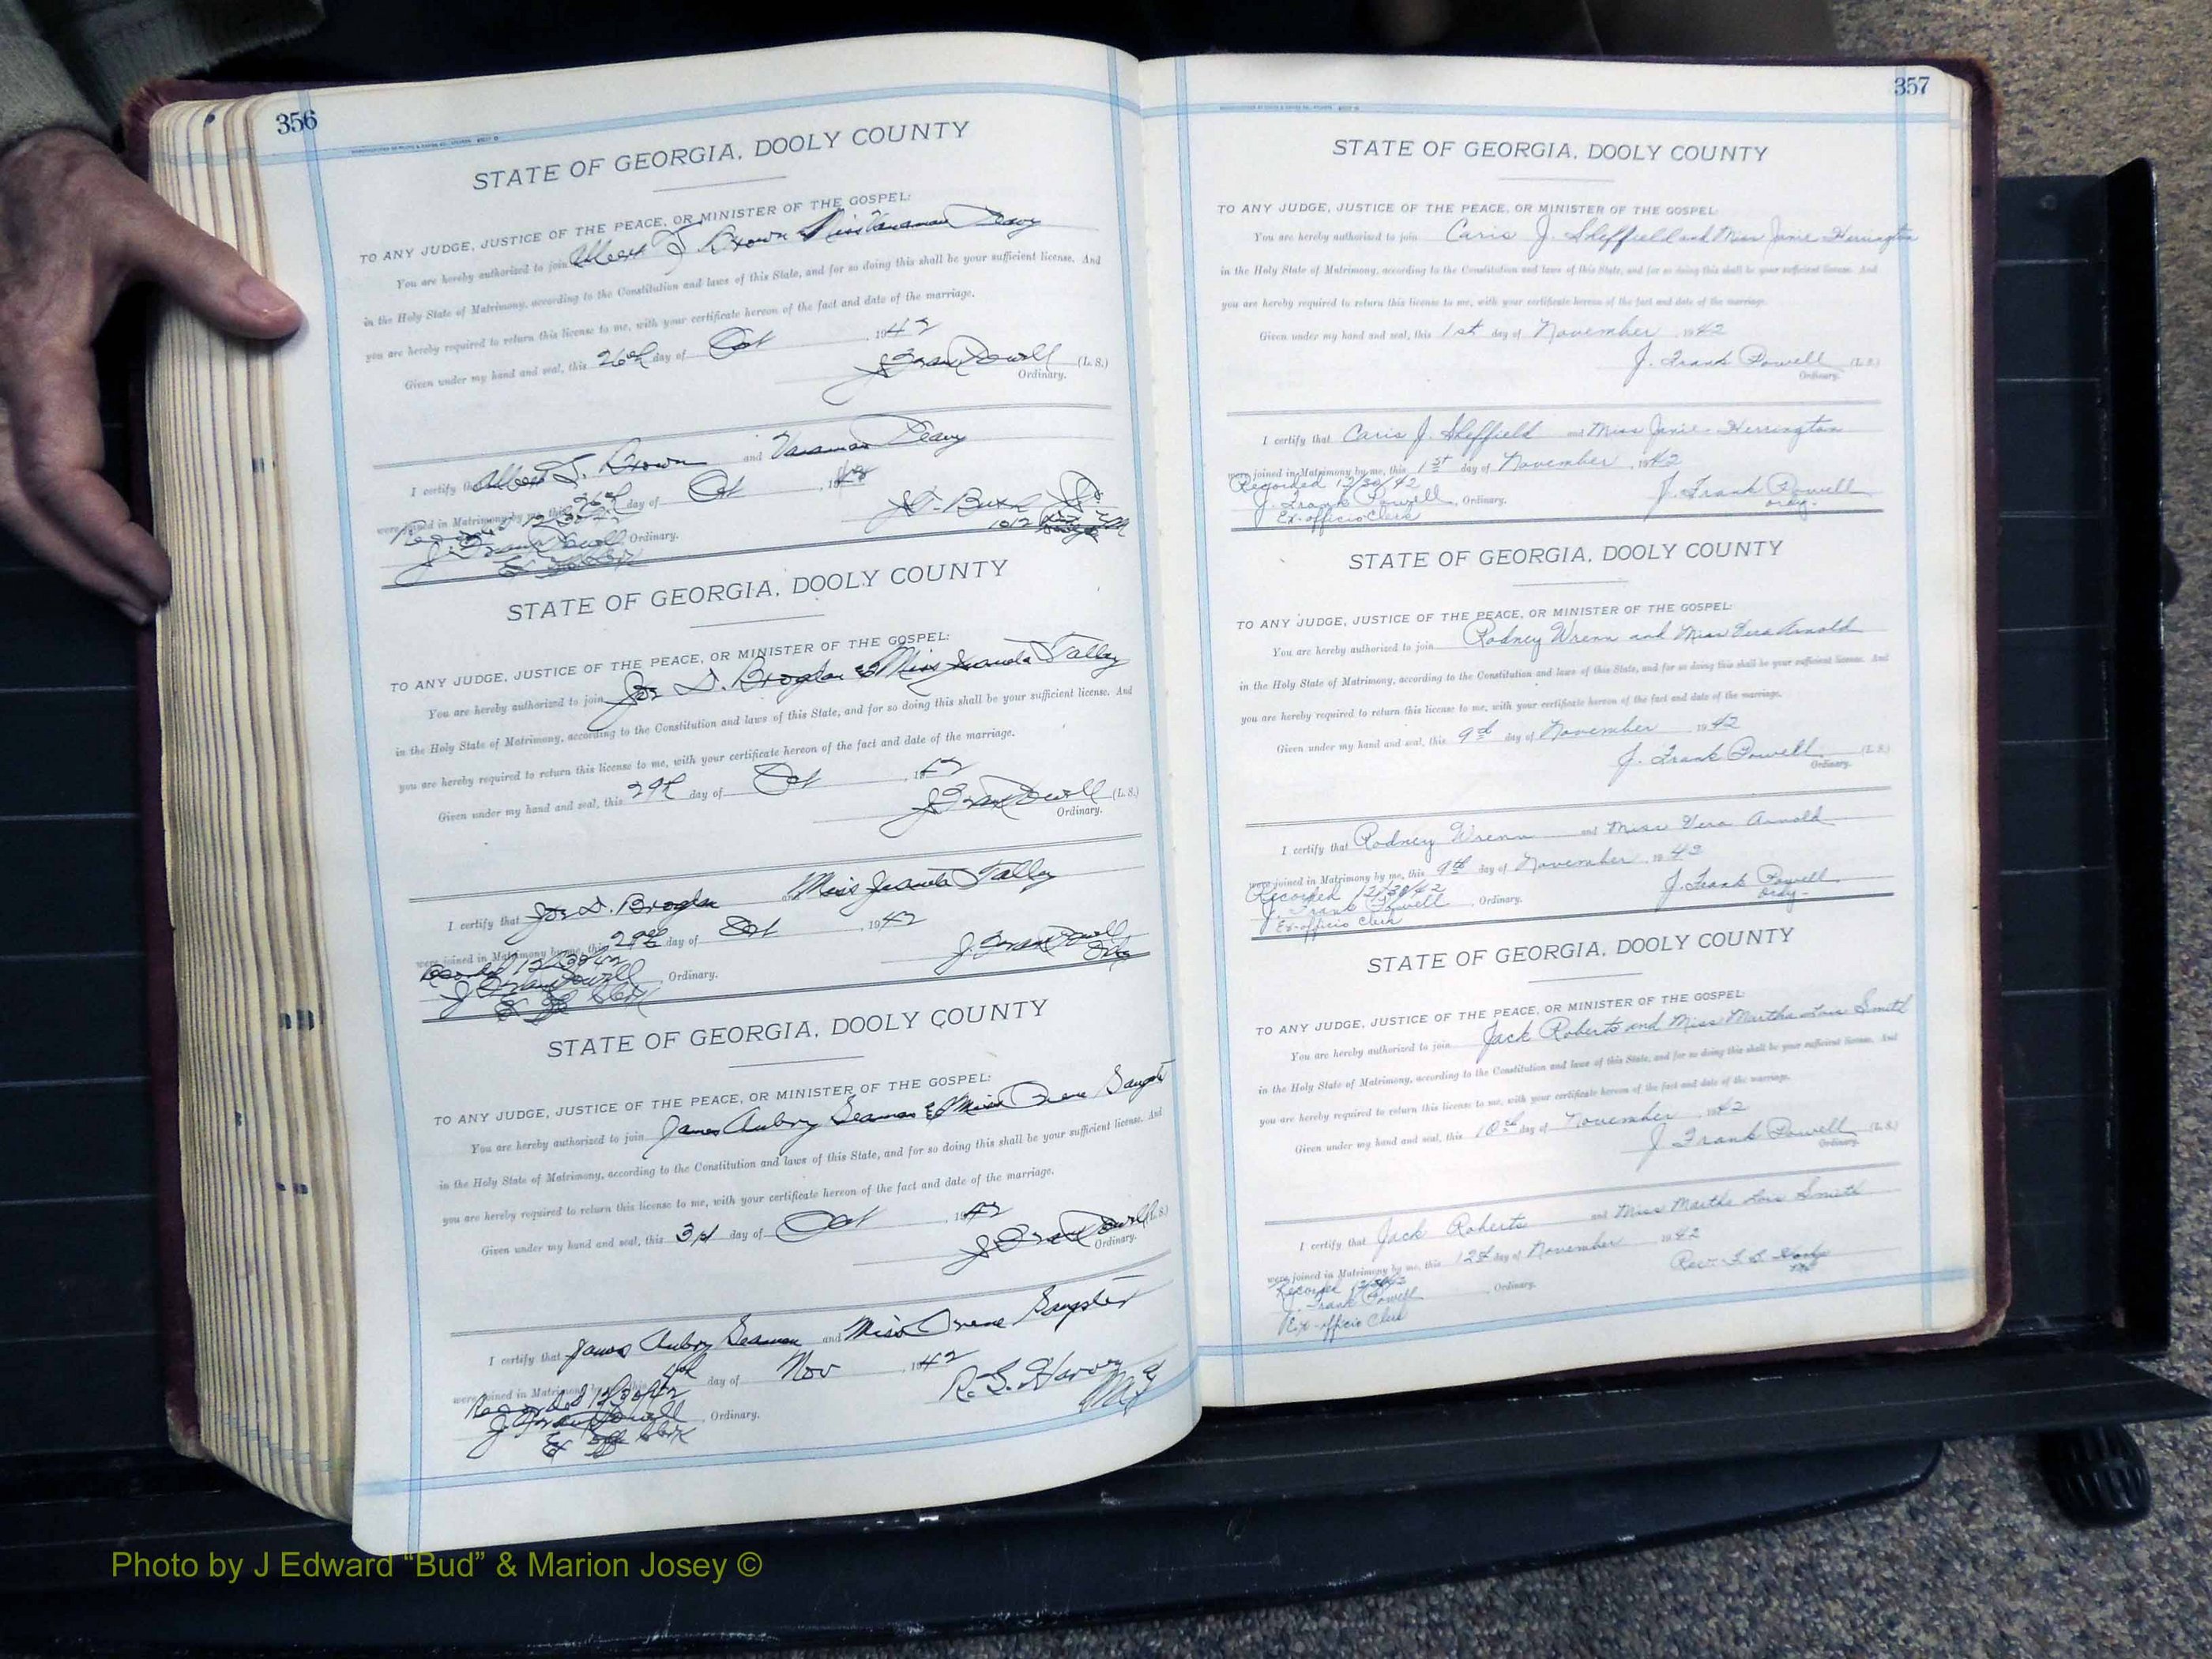 356
STATE OF GEORGIA, DOOLY COUNTY
TO ANY JUDGE, JUSTICE OF THE PEACE, OR MINISTER OF THE GOSPEL:
You are hereby authorized to join Albert Brown Miss
in the Holy State of Matrimony, according to the Constitution and laws of this State, and for so doing this shall be your sufficient license. And
you are hereby required to return this license to me, with your certificate hereon of the fact and date of the marriage.
Given under my hand and seal, this 26th day of Oct, 1942
J Frank Powell (L. S.)
Ordinary.
I certify that Albert Brown and
were joined in Matrimony by me, this 26th day of Oct, 19
Recorded 12/30/42
J. Frank Powell, Ordinary.
STATE OF GEORGIA, DOOLY COUNTY
TO ANY JUDGE, JUSTICE OF THE PEACE, OR MINISTER OF THE GOSPEL:
You are hereby authorized to join Joe D. Brogdon & Miss Juanita Talley
in the Holy State of Matrimony, according to the Constitution and laws of this State, and for so doing this shall be your sufficient license. And
you are hereby required to return this license to me, with your certificate hereon of the fact and date of the marriage.
Given under my hand and seal, this 29th day of Oct, 1942
J Frank Powell (L. S.)
Ordinary.
I certify that Joe D. Brogdon and Miss Juanita Talley
were joined in Matrimony by me, this 29th day of Oct, 1942
Recorded 12/30/42 J. Frank Powell
J Frank Powell, Ordinary. Ordy
Ex Off Clerk
STATE OF GEORGIA, DOOLY COUNTY
TO ANY JUDGE, JUSTICE OF THE PEACE, OR MINISTER OF THE GOSPEL:
You are hereby authorized to join James Aubry Seaman & Miss Irene Sangster
in the Holy State of Matrimony, according to the Constitution and laws of this State, and for so doing this shall be your sufficient license. And
you are hereby required to return this license to me, with your certificate hereon of the fact and date of the marriage.
Given under my hand and seal, this day of Oct, 1942
J Frank Powell (L. S.)
Ordinary.
I certify that James Aubry Seaman and Miss Irene Sangster
were joined in Matrimony by me, this 4th day of Nov, 1942
Recorded 12/30/42 R. S. Harvey
J. Frank Powell, Ordinary. M G
Ex Off Clerk
357
STATE OF GEORGIA, DOOLY COUNTY
TO ANY JUDGE, JUSTICE OF THE PEACE, OR MINISTER OF THE GOSPEL:
You are hereby authorized to join Caris J. Sheffield and Miss Janie Herrington
in the Holy State of Matrimony, according to the Constitution and laws of this State, and for so doing this shall be your sufficient license. And
you are hereby required to return this license to me, with your certificate hereon of the fact and date of the marriage.
Given under my hand and seal, this 1st day of November, 1942
J. Frank Powell (L. S.)
Ordinary.
I certify that Caris J. Sheffield and Miss Janie Herrington
were joined in Matrimony by me, this 1st day of November, 1942
Recorded 12/30/42
J. Frank Powell, Ordinary. J. Frank Powell
Ex-officio Clerk Ordy.
STATE OF GEORGIA, DOOLY COUNTY
TO ANY JUDGE, JUSTICE OF THE PEACE, OR MINISTER OF THE GOSPEL:
You are hereby authorized to join Rodney Wrenn and Miss Vera Arnold
in the Holy State of Matrimony, according to the Constitution and laws of this State, and for so doing this shall be your sufficient license. And
you are hereby required to return this license to me, with your certificate hereon of the fact and date of the marriage.
Given under my hand and seal, this 9th day of November, 1942
J. Frank Powell (L. S.)
Ordinary.
I certify that Rodney Wrenn and Miss Vera Arnold
were joined in Matrimony by me, this 9th day of November, 1942
Recorded 12/30/42 J. Frank Powell
J. Frank Powell, Ordinary. Ordy-
Ex-officio Clerk
STATE OF GEORGIA, DOOLY COUNTY
TO ANY JUDGE, JUSTICE OF THE PEACE, OR MINISTER OF THE GOSPEL:
You are hereby authorized to join Jack Roberts and Miss Martha Lois Smith
in the Holy State of Matrimony, according to the Constitution and laws of this State, and for so doing this shall be your sufficient license. And
you are hereby required to return this license to me, with your certificate hereon of the fact and date of the marriage.
Given under my hand and seal, this 10th day of November, 1942
J. Frank Powell (L. S.)
Ordinary.
I certify that Jack Roberts and Miss Martha Lois Smith
were joined in Matrimony by me, this 12th day of November 1942
Recorded 12/30/42 Rev.
J. Frank Powell, Ordinary.
Ex-officio Clerk
Photo by J Edward "Bud" & Marion Josey ©